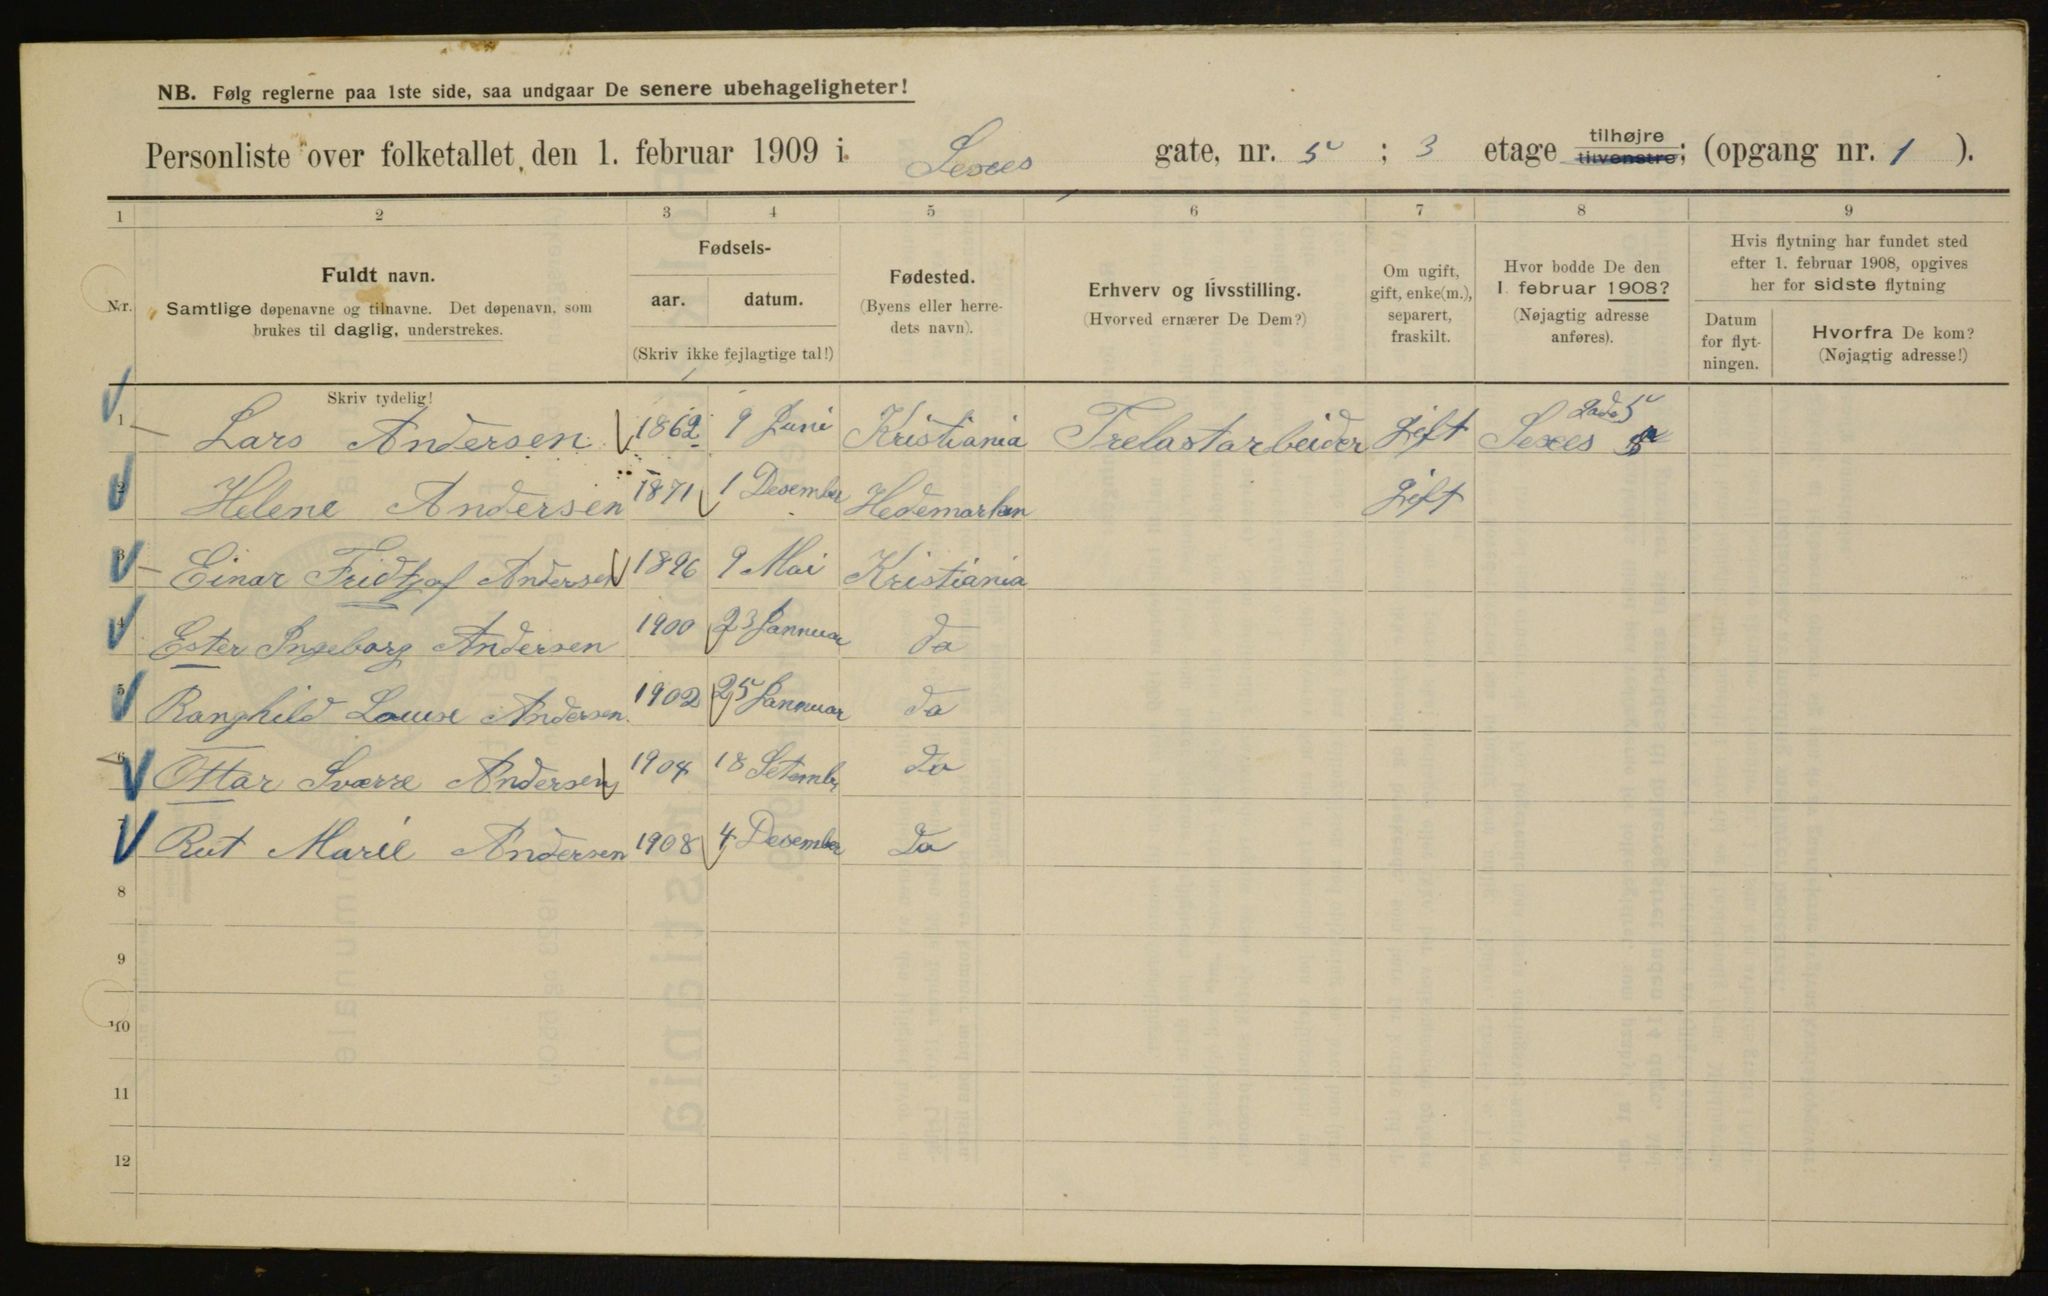 NB. Følg reglerne paa 1ste side, saa undgaar De senere ubehageligheter!
Personliste over folketallet den 1. februar 1909 i Sexes gate, nr. 5 ; 3 etage tilhøjre tilvenstre; (opgang nr. 1 ).
1 2 3 4 5 6 7 8 9
Nr.
Fuldt navn.
Samtlige døpenavne og tilnavne. Det døpenavn, som
brukes til daglig, understrekes.
Fødsels-
aar. datum.
(Skriv ikke fejlagtige tal!)
Fødested.
(Byens eller herre-
dets navn).
Erhverv og livsstilling.
(Hvorved ernærer De Dem?)
Om ugift,
gift, enke(m.),
separert,
fraskilt.
Hvor bodde De den
1. februar 1908?
(Nøjagtig adresse
anføres).
Hvis flytning har fundet sted
efter 1. februar 1908, opgives
her for sidste flytning
Datum
for flyt-
ningen.
Hvorfra De kom?
(Nøjagtig adresse!)
Skriv tydelig!
1 Lars Andersen 1862 9 Juni Kristiania Trelastarbeider Gift Sexes Gade 5
2 Helene Andersen 1871 1 Desember Hedemarken Gift
3 Einar Fridtjof Andersen 1896 9 Mai Kristiania
4 Ester Ingeborg Andersen 1900 23 Jannuar Do
5 Ranghild Louise Andersen 1902 25 Jannuar Do
6 Ottar Sværre Andersen 1904 18 Setembr Do
7 Rut Marie Andersen 1908 4 Desember Do
8
9
10
11
12